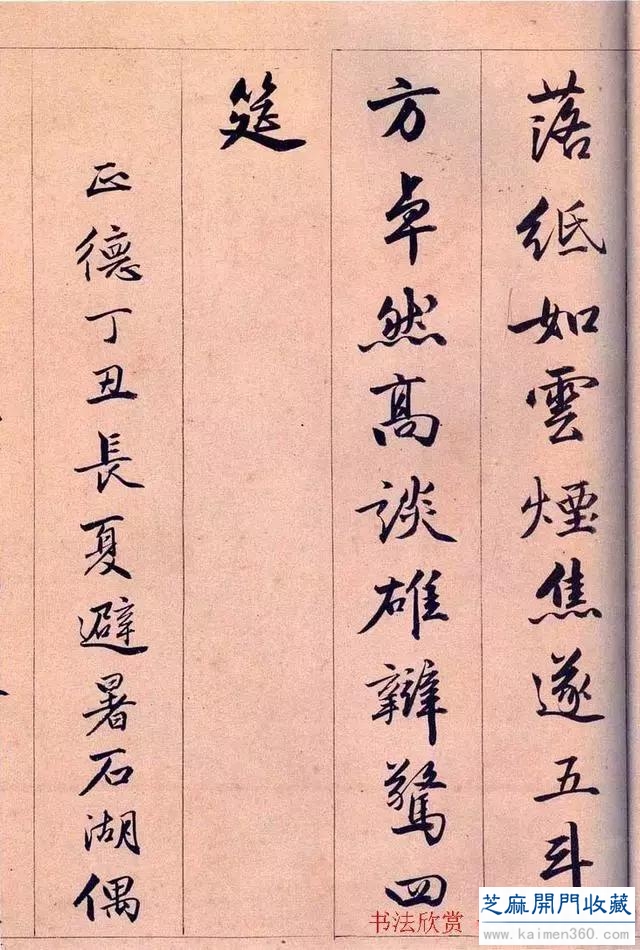 落紙如雲煙焦遂五斗
方卓然高談雄辯驚四
筵
正德丁丑長夏避暑石湖偶
书法欣赏
芝麻開門收藏
www.kaimen360.com